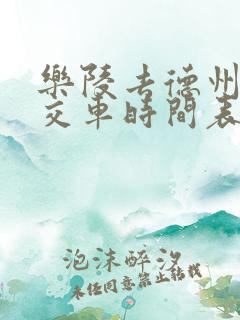 樂陵去德州
交車時間表
泡沫醉汐
未經同意禁止轉載